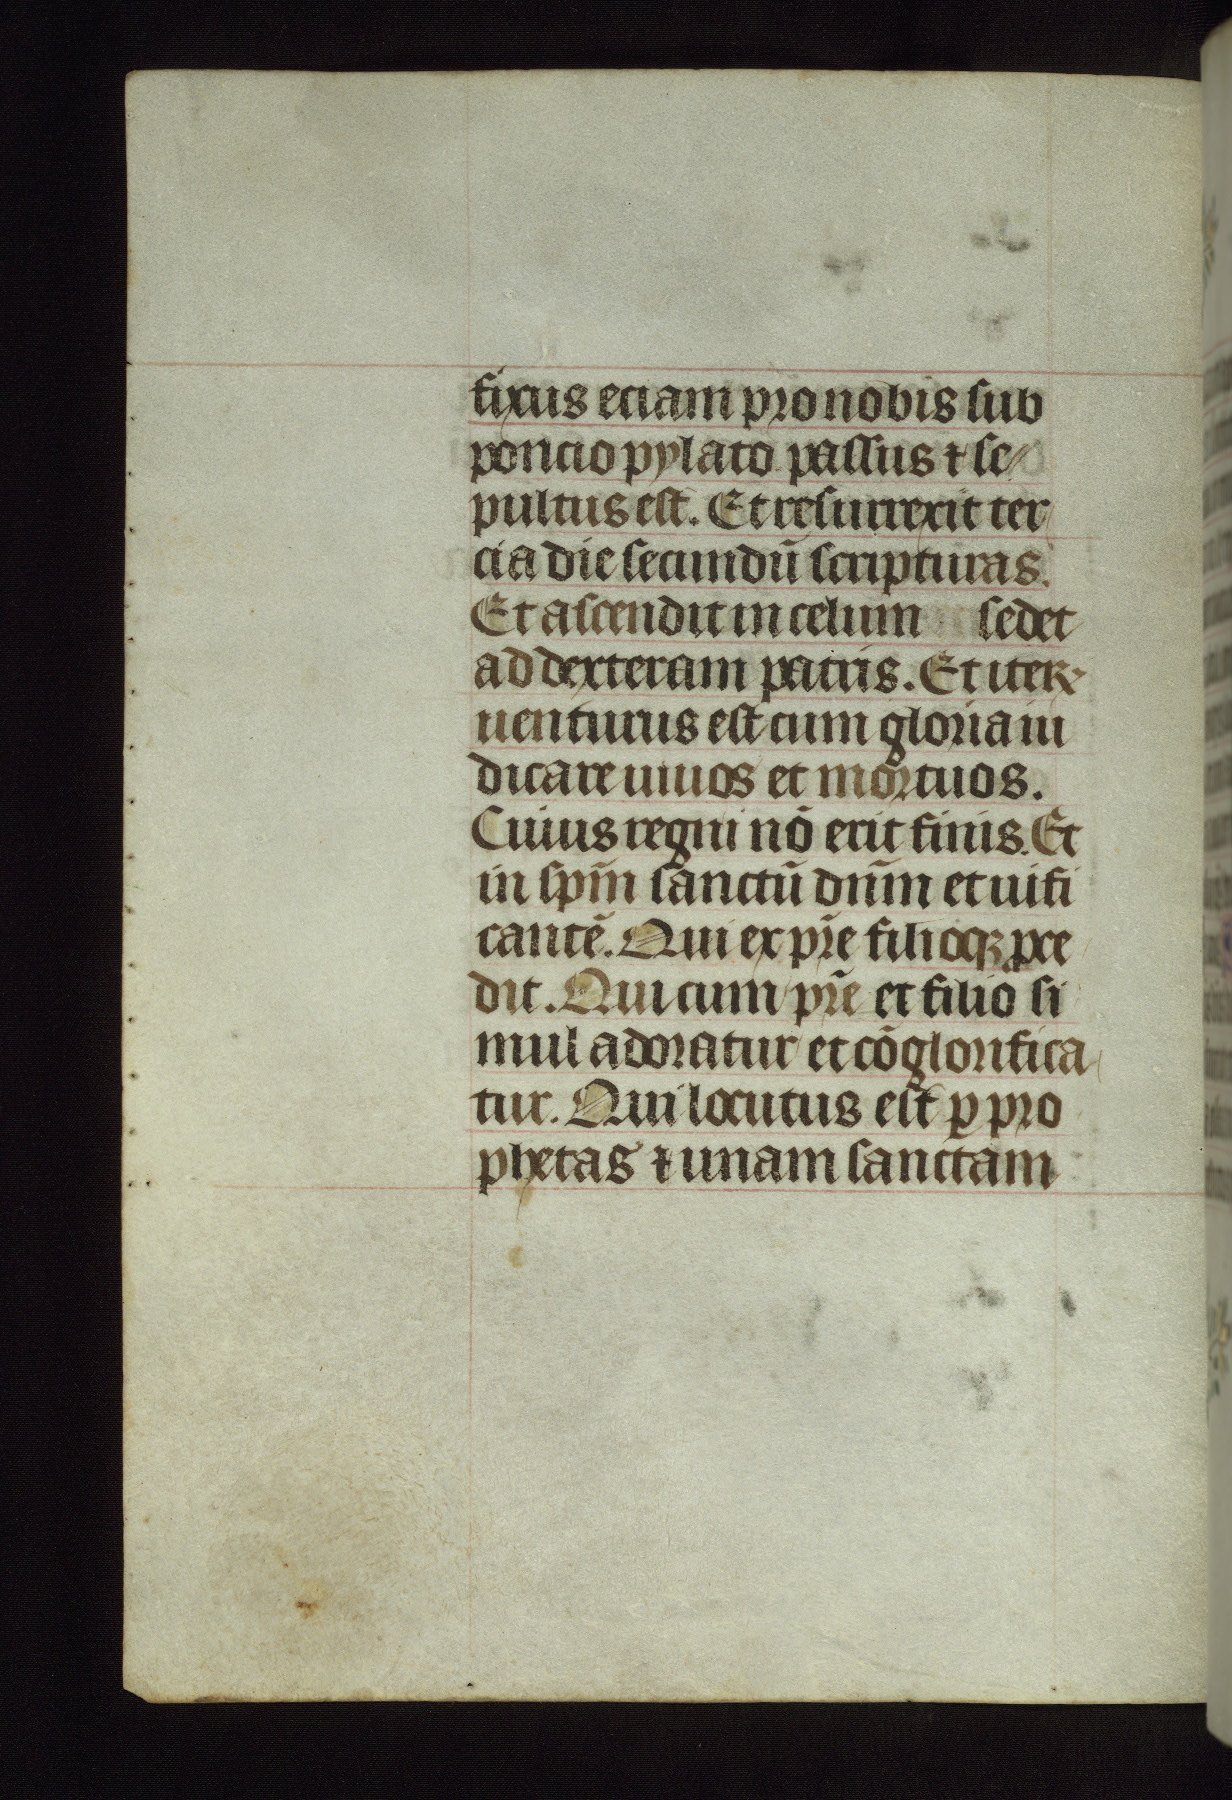 fixus eciam pro nobis sub
poncio pylato passus ⁊ se
pultus est. Et resurrexit ter
cia die secundū scripturas.
Et ascendit in celum sedet
ad dexteram patris. Et iterꝝ
uenturus est cum gloria iu
dicare uiuos et mortuos.
Cuius regni nō erit finis. Et
in sp̄m sanctū dn̄m et uifi
cantē. Qui ex pr̄e filioqꝫ ꝓce
dit. Qui cum pr̄e et filio si
mul adoratur et cōglorifica
tur. Qui locutus est ꝑ pro
phetas ⁊ unam sanctam